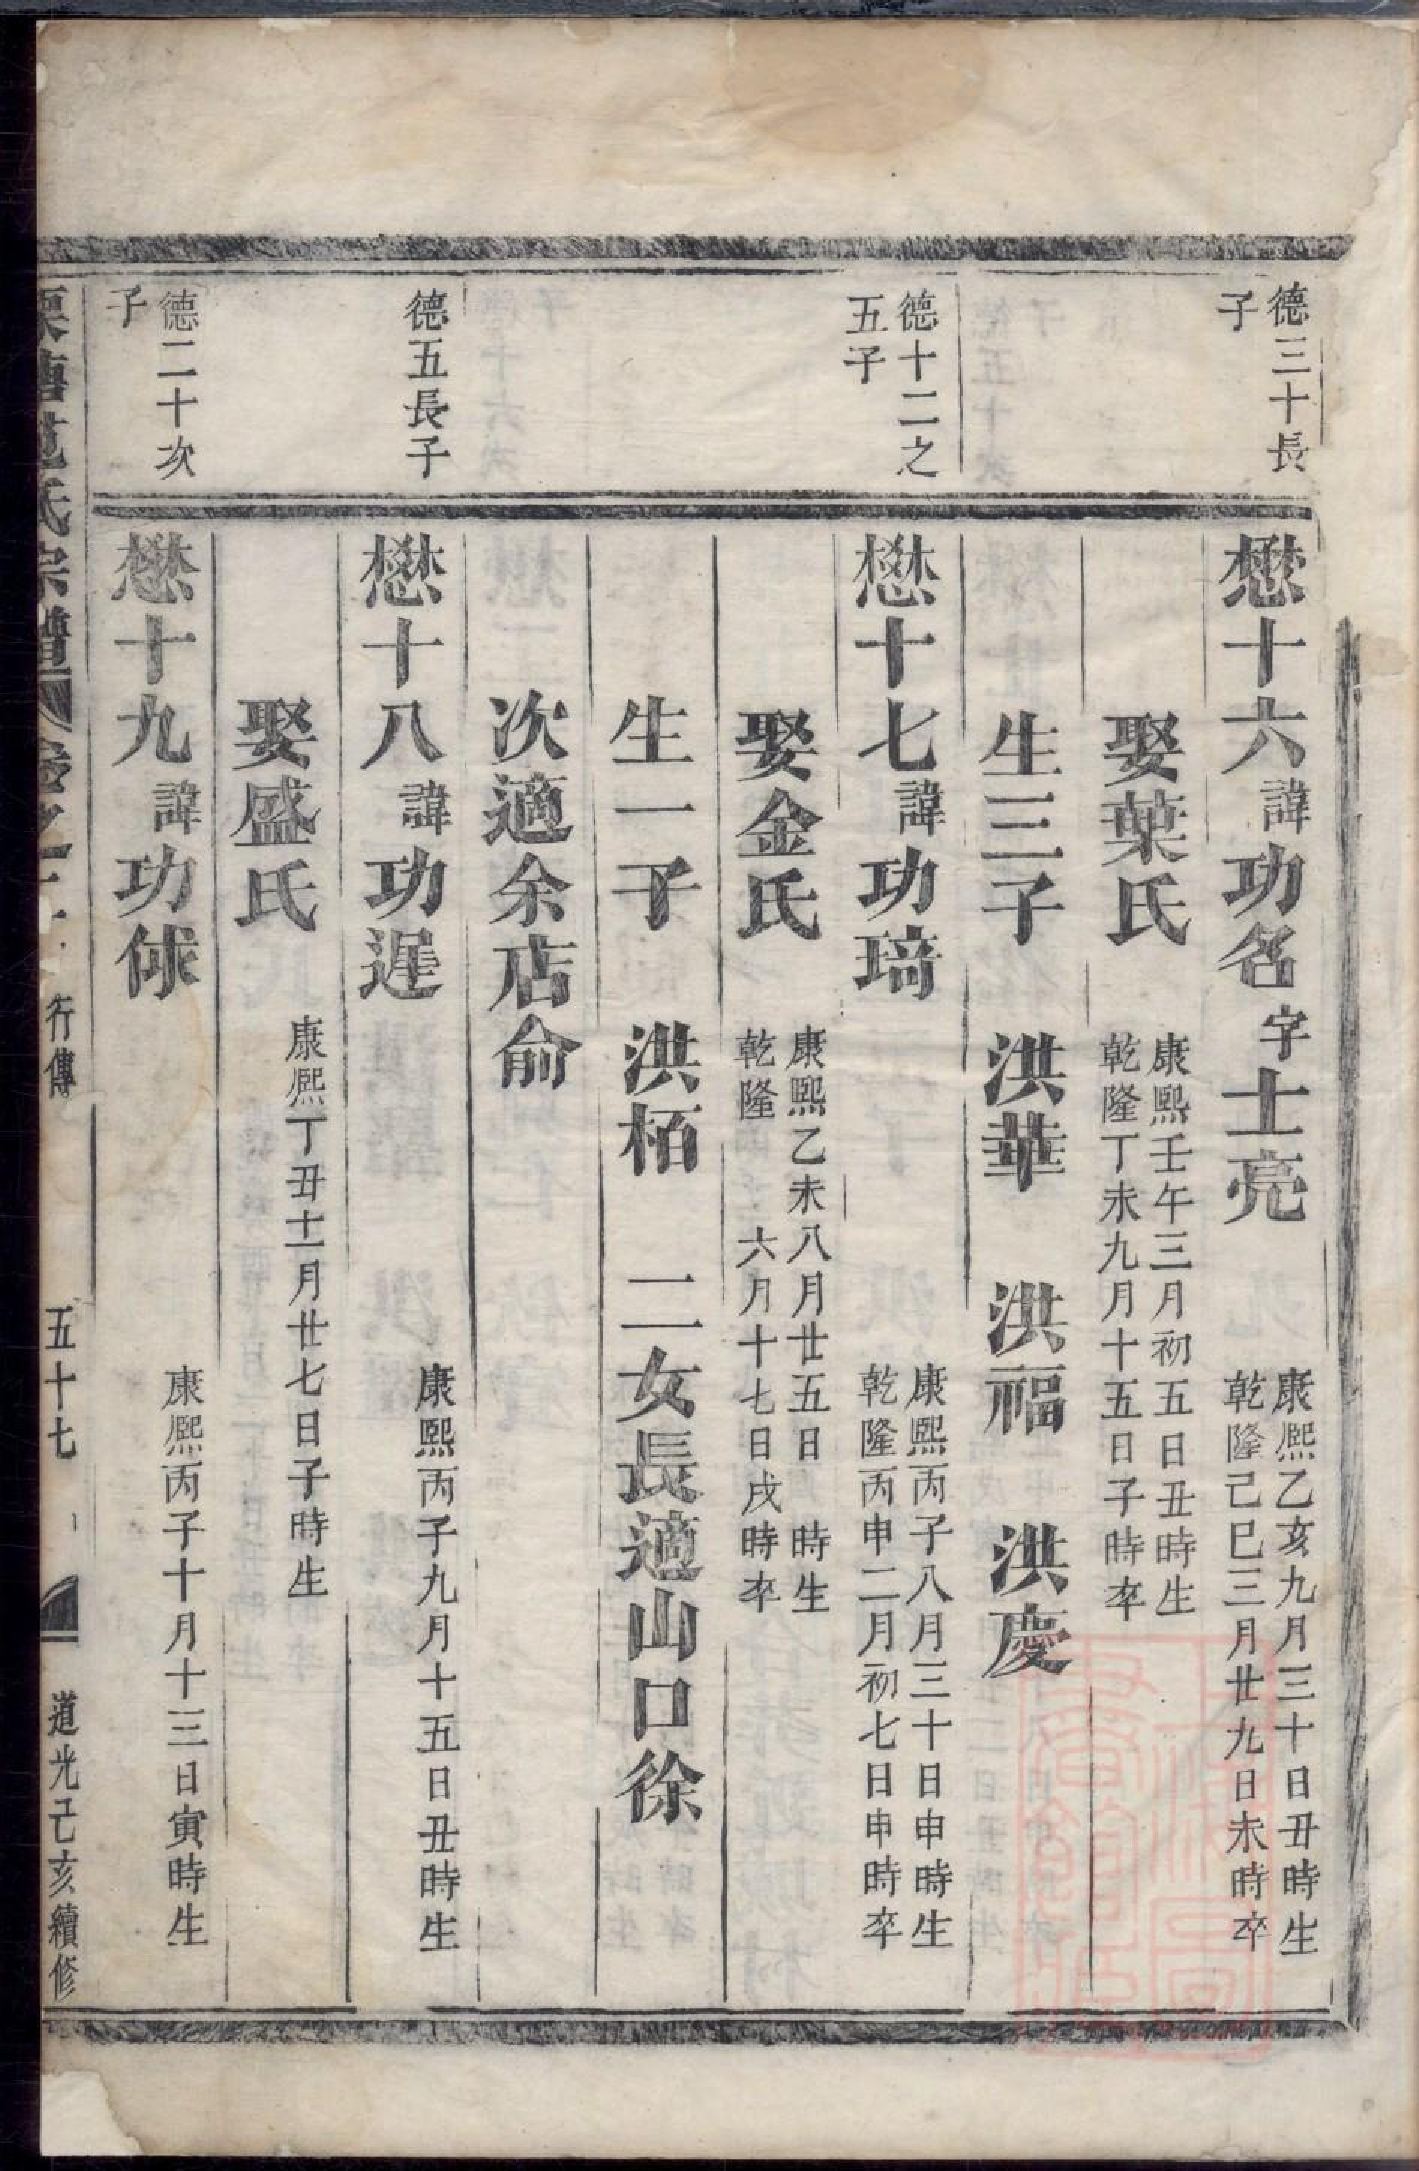 德三十長
子
懋十六諱功名字士亮
康熈乙亥九月三十日丑時生
乾隆己巳三月廿九日未時卒
娶葉氏
康熙壬午三月初五日丑時生
乾隆丁未九月十五日子時卒
生三子 洪華 洪福 洪慶
德十二之
五子
懋十七諱功琦
康熙丙子八月三十日申時生
乾隆丙申二月初七日申時卒
娶金氏
康熙乙未八月廿五日 時生
乾隆 六月十七日戌時卒
生一子 洪栢 二女長適山口徐
次適余店俞
德五長子
懋十八諱功遲
康熙丙子九月十五日丑時生
娶盛氏
康熈丁丑十一月廿七日子時生
德二十次
子
懋十九諱功俅
康熈丙子十月十三日寅時生
氏宗譜 卷之 行傳 五十七 道光己亥續修